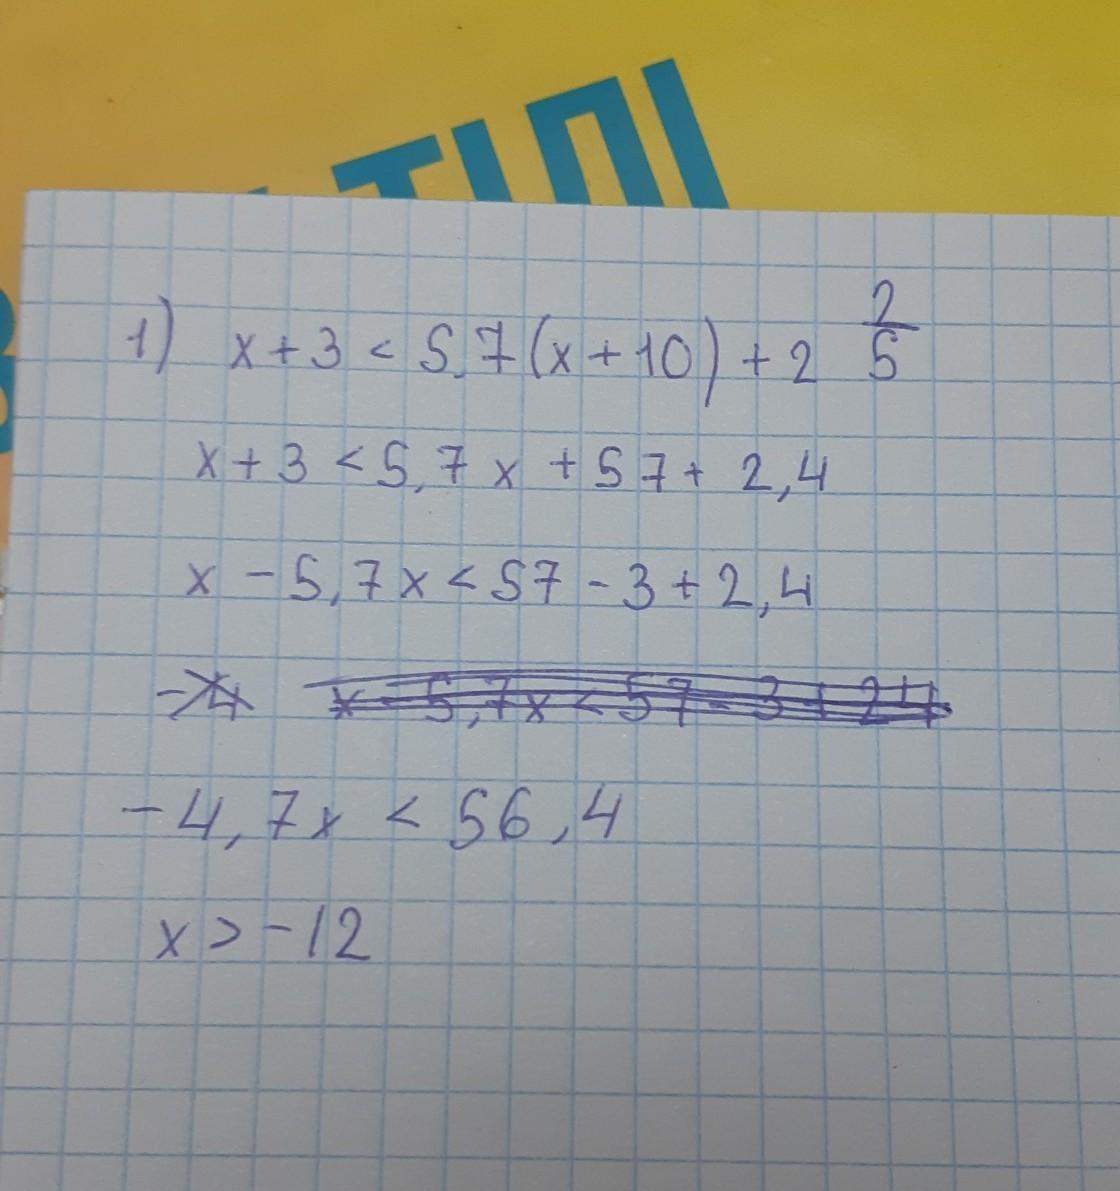 ТІЛІ
1) x + 3 < 5,7(x + 10) + 2 2/5
x + 3 < 5,7x + 57 + 2,4
x - 5,7x < 57 - 3 + 2,4
x - 5,7x < 57 - 3 + 2,4
-4,7x < 56,4
x > -12